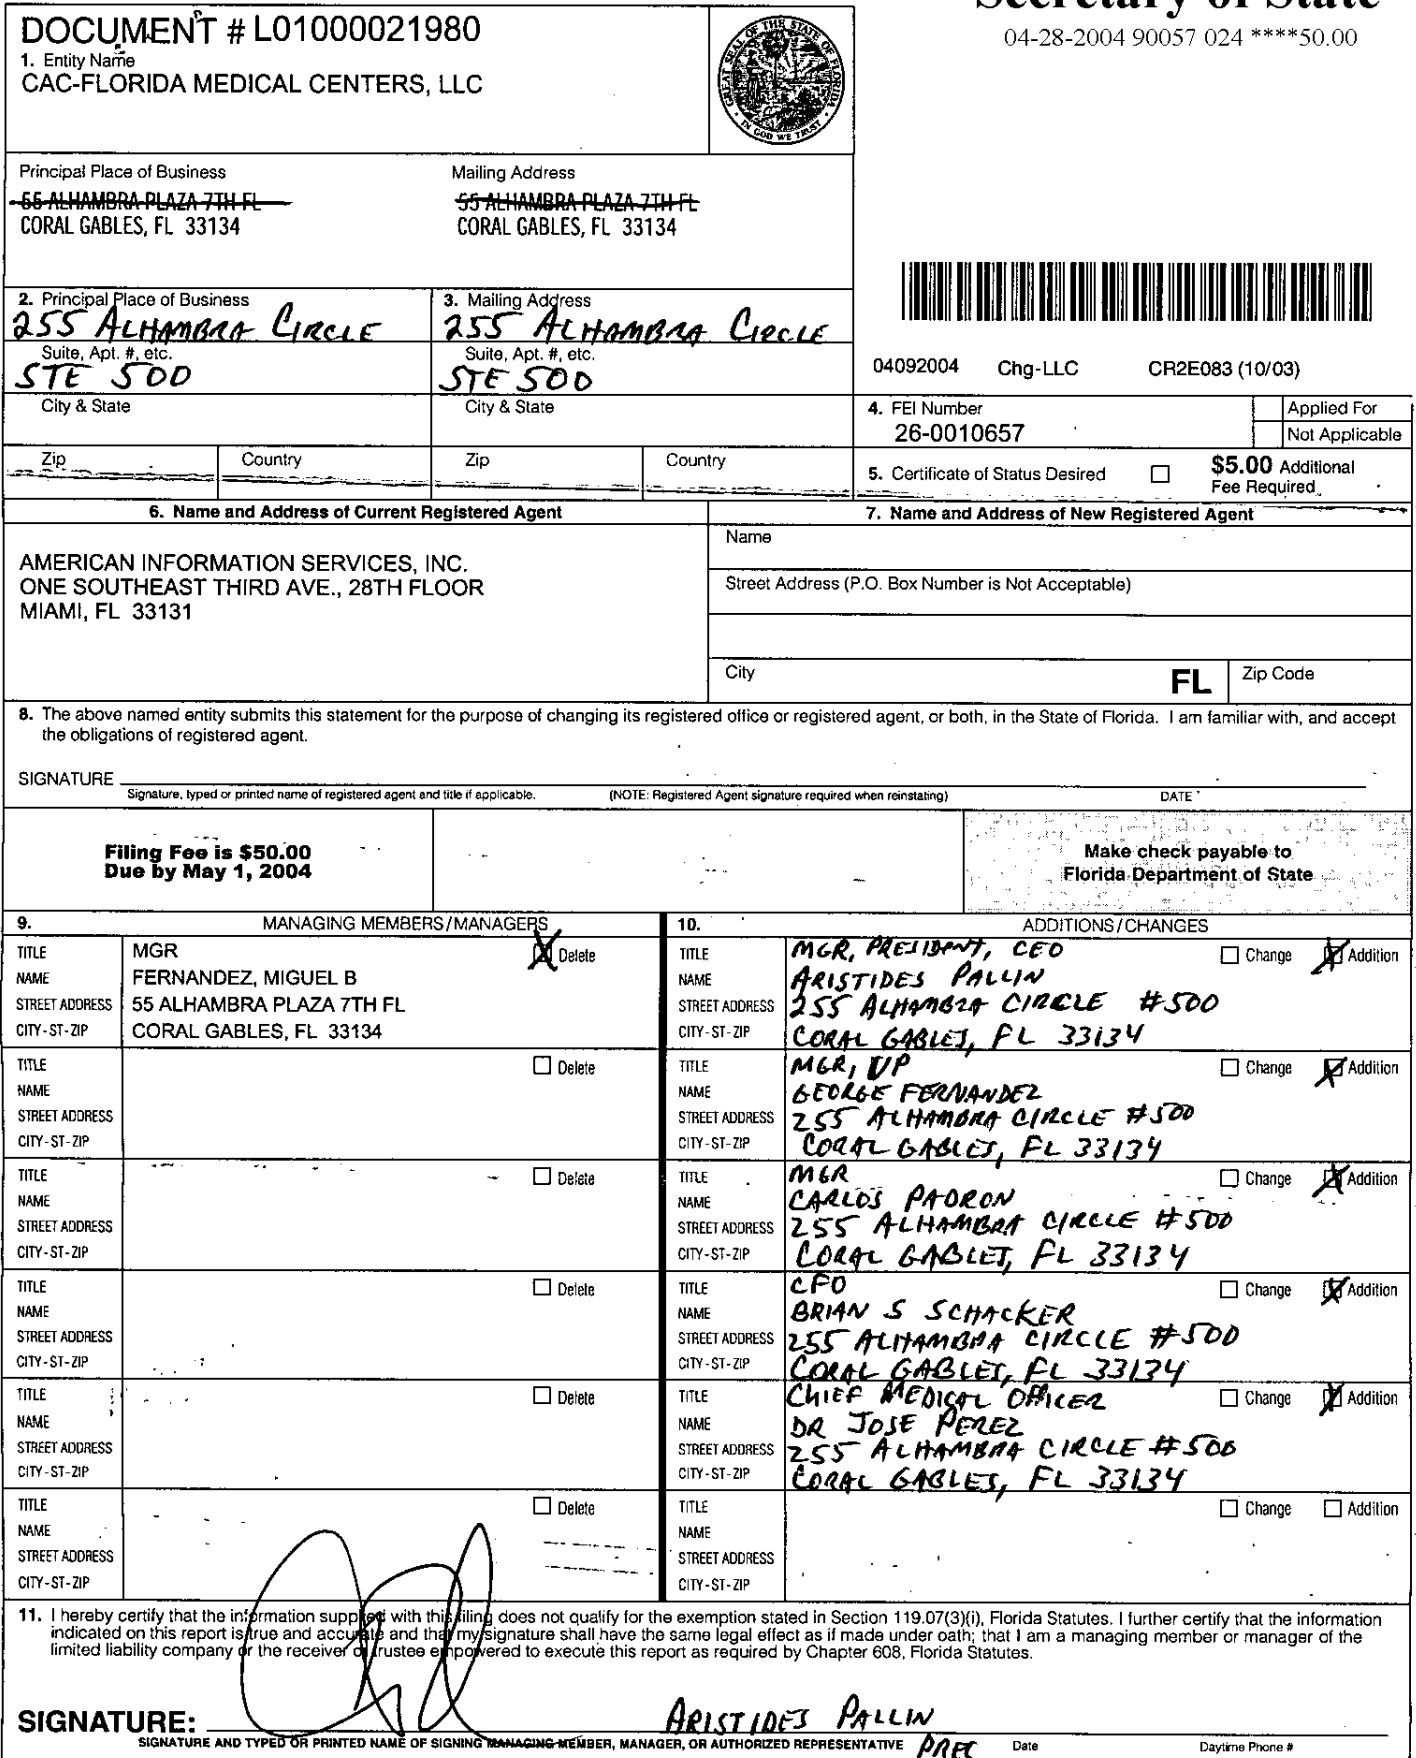 Secretary of State
04-28-2004 90057 024 ****50.00
DOCUMENT # L01000021980
1. Entity Name
CAC-FLORIDA MEDICAL CENTERS, LLC
GREAT SEAL OF THE STATE OF FLORIDA
IN GOD WE TRUST
Principal Place of Business
55 ALHAMBRA PLAZA 7TH FL
CORAL GABLES, FL 33134
Mailing Address
55 ALHAMBRA PLAZA 7TH FL
CORAL GABLES, FL 33134
2. Principal Place of Business
255 ALHAMBRA CIRCLE
Suite, Apt. #, etc.
STE 500
City & State
Zip Country
3. Mailing Address
255 ALHAMBRA CIRCLE
Suite, Apt. #, etc.
STE 500
City & State
Zip Country
04092004 Chg-LLC CR2E083 (10/03)
4. FEI Number
26-0010657
Applied For
Not Applicable
5. Certificate of Status Desired
$5.00 Additional
Fee Required
6. Name and Address of Current Registered Agent
AMERICAN INFORMATION SERVICES, INC.
ONE SOUTHEAST THIRD AVE., 28TH FLOOR
MIAMI, FL 33131
7. Name and Address of New Registered Agent
Name
Street Address (P.O. Box Number is Not Acceptable)
City FL Zip Code
8. The above named entity submits this statement for the purpose of changing its registered office or registered agent, or both, in the State of Florida. I am familiar with, and accept
the obligations of registered agent.
SIGNATURE
Signature, typed or printed name of registered agent and title if applicable. (NOTE: Registered Agent signature required when reinstating) DATE
Filing Fee is $50.00
Due by May 1, 2004
Make check payable to
Florida Department of State
9. MANAGING MEMBERS/MANAGERS
TITLE MGR Delete
NAME FERNANDEZ, MIGUEL B
STREET ADDRESS 55 ALHAMBRA PLAZA 7TH FL
CITY-ST-ZIP CORAL GABLES, FL 33134
TITLE Delete
NAME
STREET ADDRESS
CITY-ST-ZIP
TITLE Delete
NAME
STREET ADDRESS
CITY-ST-ZIP
TITLE Delete
NAME
STREET ADDRESS
CITY-ST-ZIP
TITLE Delete
NAME
STREET ADDRESS
CITY-ST-ZIP
TITLE Delete
NAME
STREET ADDRESS
CITY-ST-ZIP
10. ADDITIONS/CHANGES
TITLE MGR, PRESIDENT, CEO Change Addition
NAME ARISTIDES PALLIN
STREET ADDRESS 255 ALHAMBRA CIRCLE #500
CITY-ST-ZIP CORAL GABLES, FL 33134
TITLE MGR, VP Change Addition
NAME GEORGE FERNANDEZ
STREET ADDRESS 255 ALHAMBRA CIRCLE #500
CITY-ST-ZIP CORAL GABLES, FL 33134
TITLE MGR Change Addition
NAME CARLOS PADRON
STREET ADDRESS 255 ALHAMBRA CIRCLE #500
CITY-ST-ZIP CORAL GABLES, FL 33134
TITLE CFO Change Addition
NAME BRIAN S SCHACKER
STREET ADDRESS 255 ALHAMBRA CIRCLE #500
CITY-ST-ZIP CORAL GABLES, FL 33134
TITLE CHIEF MEDICAL OFFICER Change Addition
NAME DR JOSE PEREZ
STREET ADDRESS 255 ALHAMBRA CIRCLE #500
CITY-ST-ZIP CORAL GABLES, FL 33134
TITLE Change Addition
NAME
STREET ADDRESS
CITY-ST-ZIP
11. I hereby certify that the information supplied with this filing does not qualify for the exemption stated in Section 119.07(3)(i), Florida Statutes. I further certify that the information
indicated on this report is true and accurate and that my signature shall have the same legal effect as if made under oath; that I am a managing member or manager of the
limited liability company or the receiver or trustee empowered to execute this report as required by Chapter 608, Florida Statutes.
SIGNATURE: ARISTIDES PALLIN
SIGNATURE AND TYPED OR PRINTED NAME OF SIGNING MANAGING MEMBER, MANAGER, OR AUTHORIZED REPRESENTATIVE Date Daytime Phone #